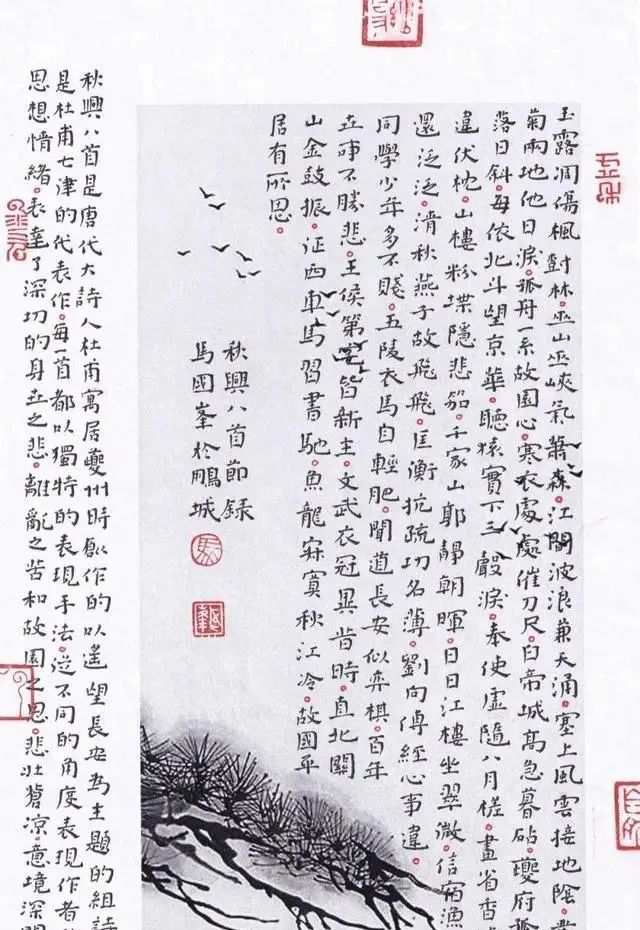 玉露凋傷楓對林。巫山巫峽氣蕭森。江間波浪兼天涌。塞上風雲接地陰。
菊兩地他日淚。孤舟一系故園心。寒衣處處催刀尺。白帝城高急暮砧。夔府孤
落日斜。每依北斗望京華。聽猿實下三聲淚。奉使虛隨八月槎。畫省香
違伏枕。山樓粉堞隱悲笳。千家山郭靜朝暉。日日江樓坐翠微。信宿漁
還泛泛。清秋燕子故飛飛。匡衡抗疏功名薄。劉向傳經心事違。
同學少年多不賤。五陵衣馬自輕肥。聞道長安似弈棋。百年
世事不勝悲。王侯第宅皆新主。文武衣冠異昔時。直北關
山金鼓振。征西車馬習書馳。魚龍寂寞秋江冷。故國平
居有所思。
秋興八首節錄
馬國峯於鵬城
秋興八首是唐代大詩人杜甫寓居夔州時創作的以遙望長安為主題的組詩
是杜甫七津的代表作。每一首都以獨特的表現手法。從不同的角度表現作者
思想情緒。表達了深切的身世之悲。離亂之苦和故園之思。悲壯蒼涼。意境深